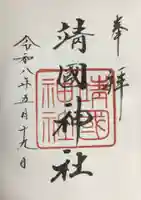 奉拝
靖國神社
令和八年五月十九日
靖國
神社